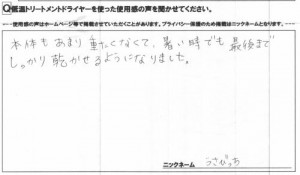 Q低温トリートメントドライヤーを使った使用感の声を聞かせてください。
使用感の声はホームページ等で掲載させていただくことがあります。プライバシー保護のため掲載はニックネームとなります。
本体もあまり重たくなくて、暑い時でも最後まで
しっかり乾かせるようになりました。
ニックネーム うさぴっち